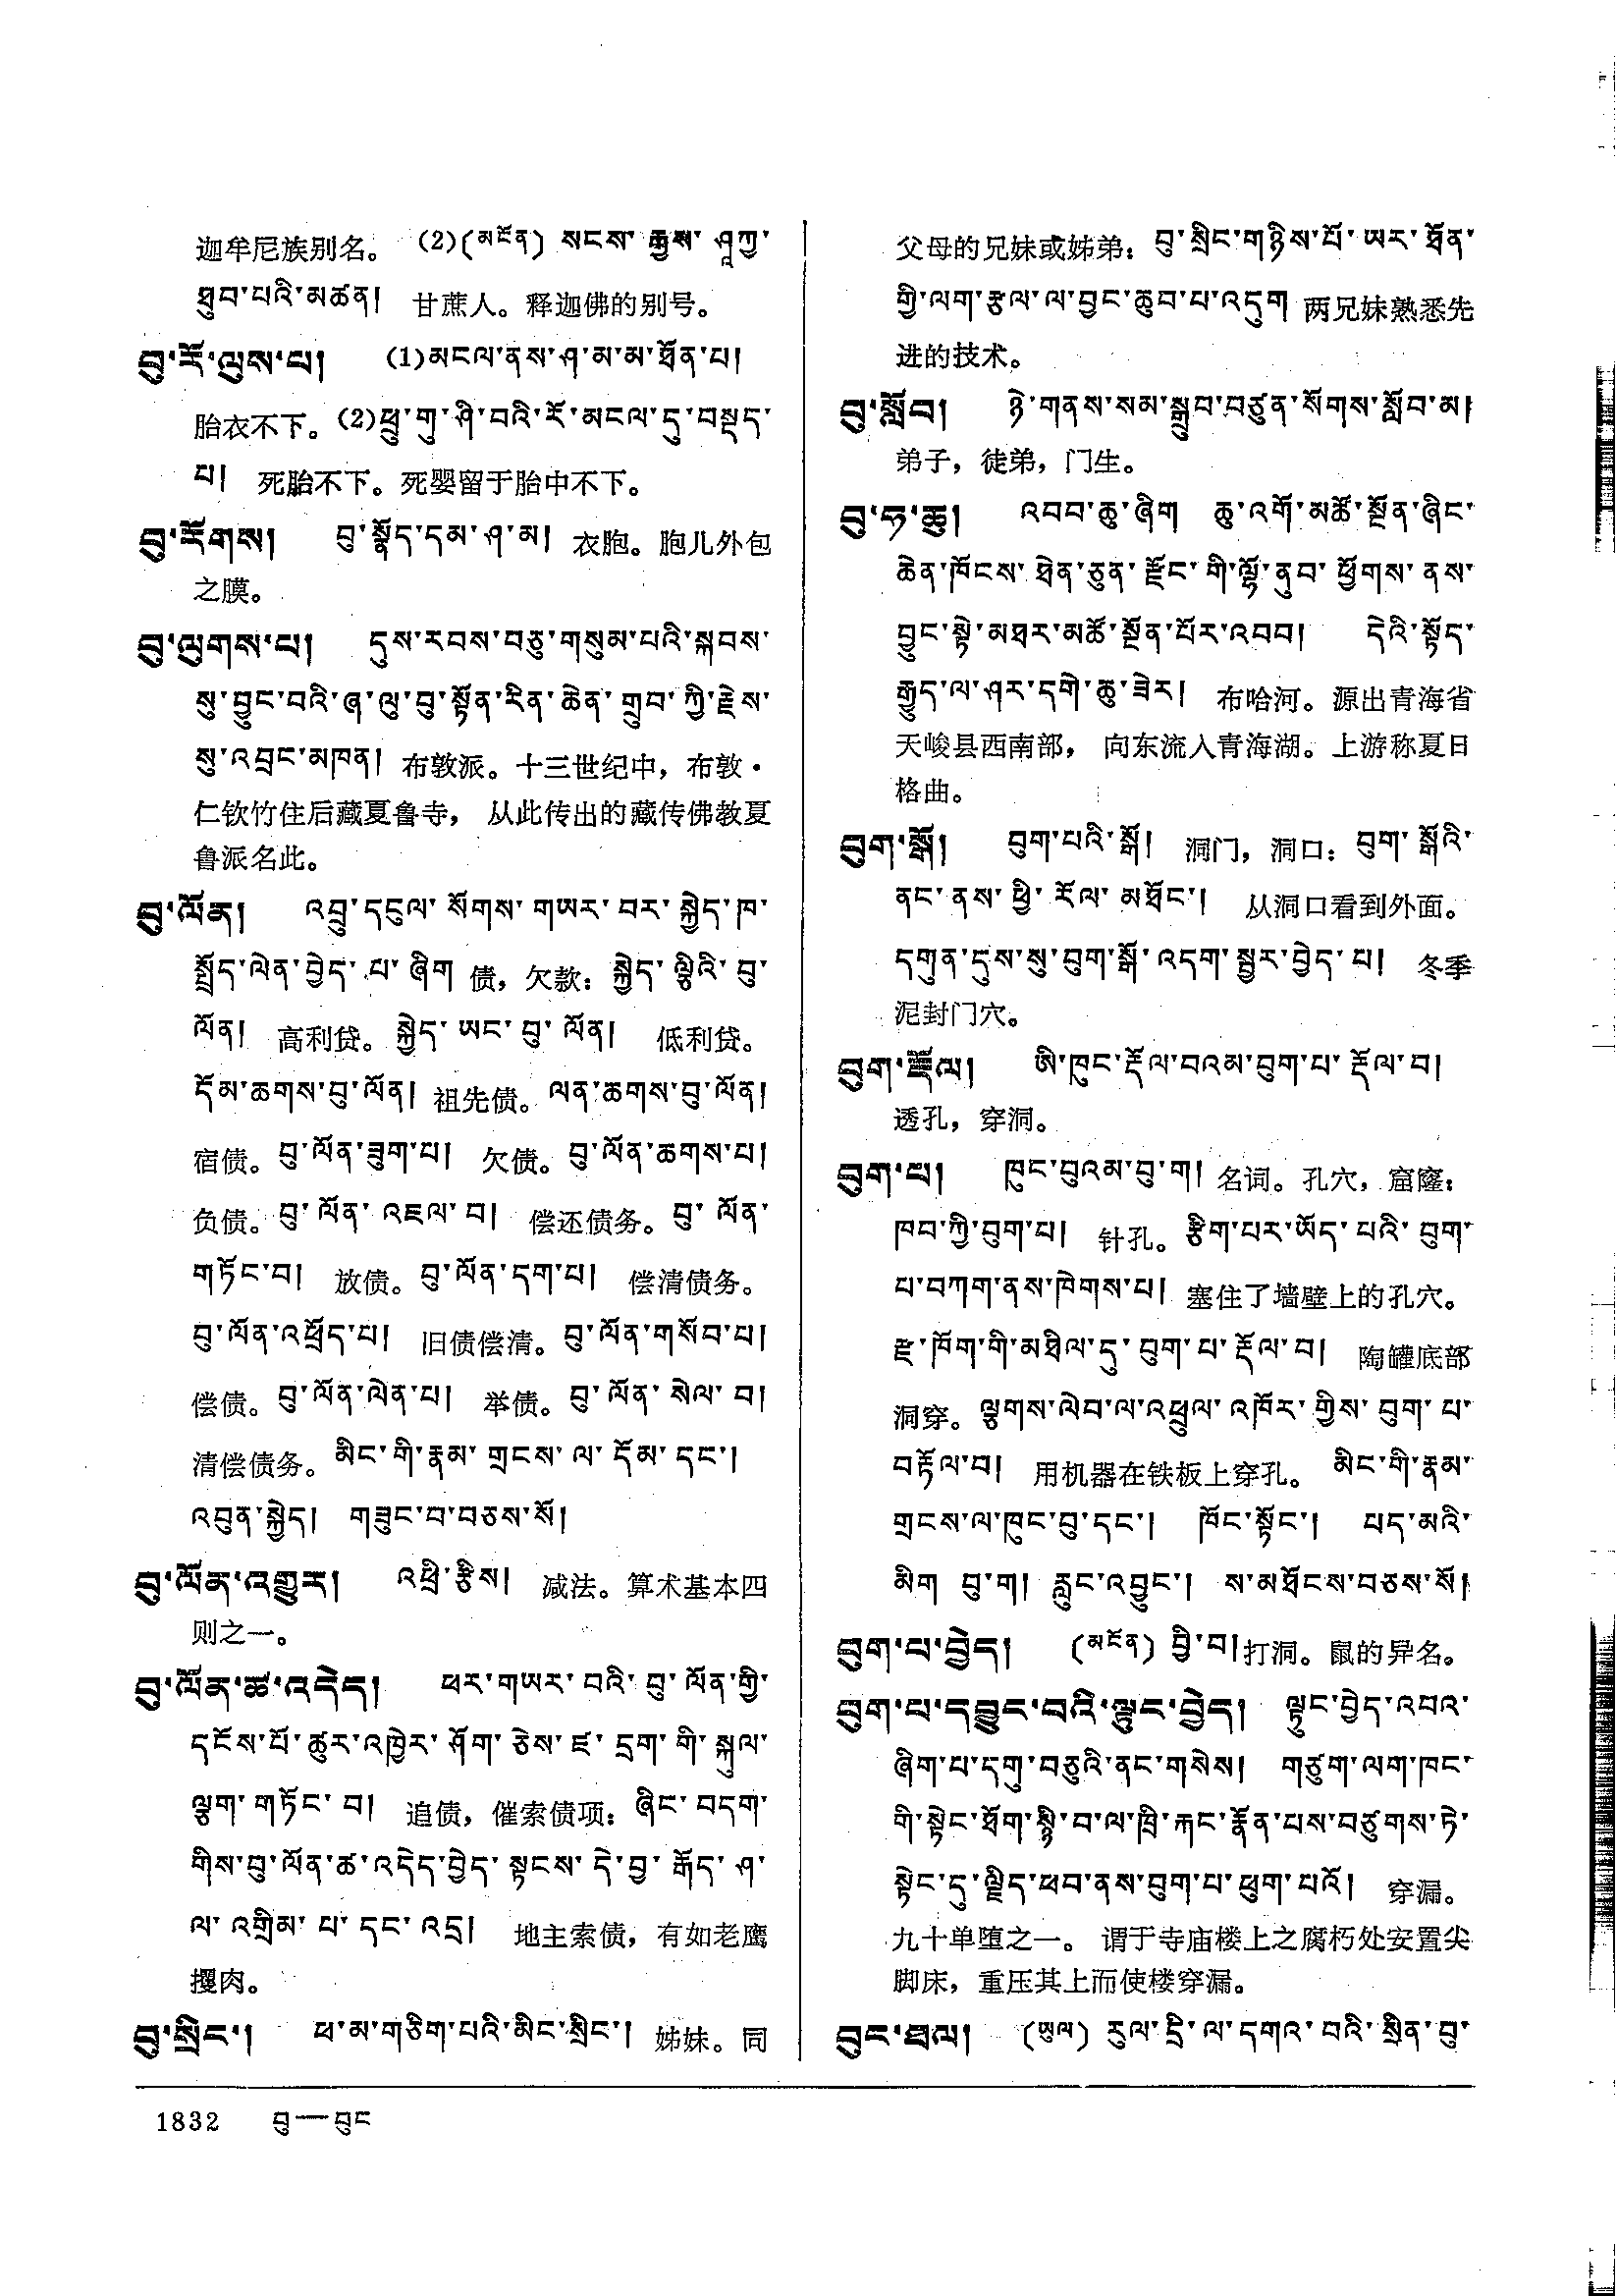 迦牟尼族别名。 (2)(མངོན) སངས་རྒྱས་ཤཱཀྱ་
ཐུབ་པའི་མཚན། 甘蔗人。释迦佛的别号。
བུ་རོ་ལུས་པ། (1)མངལ་ནས་ཤ་མ་མ་ཐོན་པ།
胎衣不下。(2)ཕྲུ་གུ་ཤི་བའི་རོ་མངལ་དུ་བསྡད་
པ། 死胎不下。死婴留于胎中不下。
བུ་རོགས། བུ་སྣོད་དམ་ཤ་མ། 衣胞。胞儿外包
之膜。
བུ་ལུགས་པ། དུས་རབས་བཅུ་གསུམ་པའི་སྐབས་
སུ་བྱུང་བའི་ཞ་ལུ་བུ་སྟོན་རིན་ཆེན་གྲུབ་ཀྱི་རྗེས་
སུ་འབྲང་མཁན། 布敦派。十三世纪中，布敦·
仁钦竹住后藏夏鲁寺， 从此传出的藏传佛教夏
鲁派名此。
བུ་ལོན། འབྲུ་དངུལ་སོགས་གཡར་བར་སྐྱེད་ཁ་
སྤྲོད་ལེན་བྱེད་པ་ཞིག 债，欠款：སྐྱེད་ལྕིའི་བུ་
ལོན། 高利贷。སྐྱེད་ཡང་བུ་ལོན། 低利贷。
དོམ་ཆགས་བུ་ལོན། 祖先债。ལན་ཆགས་བུ་ལོན།
宿债。བུ་ལོན་ཟུག་པ། 欠债。བུ་ལོན་ཆགས་པ།
负债。བུ་ལོན་འཇལ་བ། 偿还债务。བུ་ལོན་
གཏོང་བ། 放债。བུ་ལོན་དག་པ། 偿清债务。
བུ་ལོན་འཕྲོད་པ། 旧债偿清。བུ་ལོན་གསོབ་པ།
偿债。བུ་ལོན་ལེན་པ། 举债。བུ་ལོན་སེལ་བ།
清偿债务。མིང་གི་རྣམ་གྲངས་ལ་དོམ་དང་།
འབུན་སྐྱེད། གཟུང་བ་བཅས་སོ།
བུ་ལོན་འགྱུར། འཕྲི་རྩིས། 减法。算术基本四
则之一。
བུ་ལོན་ཚ་འདེད། ཕར་གཡར་བའི་བུ་ལོན་གྱི་
དངོས་པོ་ཚུར་འཁྱེར་ཤོག་ཅེས་ཛ་དྲག་གི་སྐུལ་
ལྕག་གཏོང་བ། 追债，催索债项：ཞིང་བདག་
གིས་བུ་ལོན་ཚ་འདེད་བྱེད་སྟངས་དེ་བྱ་རྒོད་ཤ་
ལ་འགྲིམ་པ་དང་འདྲ། 地主索债，有如老鹰
攫肉。
བུ་སྲིང་། ཕ་མ་གཅིག་པའི་མིང་སྲིང་། 姊妹。同
父母的兄妹或姊弟：བུ་སྲིང་གཉིས་པོ་ཡར་ཐོན་
གྱི་ལག་རྩལ་ལ་བྱང་ཆུབ་པ་འདུག 两兄妹熟悉先
进的技术。
བུ་སློབ། ཉེ་གནས་སམ་སྒྲུབ་བཙུན་སོགས་སློབ་མ།
弟子，徒弟，门生。
བུ་ཧ་ཆུ། འབབ་ཆུ་ཞིག ཆུ་འགོ་མཚོ་སྔོན་ཞིང་
ཆེན་ཁོངས་ཐེན་ཅུན་རྫོང་གི་ལྷོ་ནུབ་ཕྱོགས་ནས་
བྱུང་སྟེ་མཐར་མཚོ་སྔོན་པོར་འབབ། དེའི་སྟོད་
རྒྱུད་ལ་ཤར་དགེ་ཆུ་ཟེར། 布哈河。源出青海省
天峻县西南部， 向东流入青海湖。上游称夏日
格曲。
བུག་སྒོ། བུག་པའི་སྒོ། 洞门，洞口：བུག་སྒོའི་
ནང་ནས་ཕྱི་རོལ་མཐོང་། 从洞口看到外面。
དགུན་དུས་སུ་བུག་སྒོ་འདག་སྦྱར་བྱེད་པ། 冬季
泥封门穴。
བུག་རྡོལ། ཨི་ཁུང་རྡོལ་བའམ་བུག་པ་རྡོལ་བ།
透孔，穿洞。
བུག་པ། ཁུང་བུའམ་བུ་ག། 名词。孔穴，窟窿：
ཁབ་ཀྱི་བུག་པ། 针孔。རྩིག་པར་ཡོད་པའི་བུག་
པ་བཀག་ནས་ཁེགས་པ། 塞住了墙壁上的孔穴。
རྫ་ཁོག་གི་མཐིལ་དུ་བུག་པ་རྡོལ་བ། 陶罐底部
洞穿。ལྕགས་ལེབ་ལ་འཕྲུལ་འཁོར་གྱིས་བུག་པ་
བརྟོལ་བ། 用机器在铁板上穿孔。 མིང་གི་རྣམ་
གྲངས་ལ་ཁུང་བུ་དང་། ཁོང་སྟོང་། པད་མའི་
མིག བུ་ག། རླུང་འབྱུང་། ས་མཐོངས་བཅས་སོ།
བུག་པ་བྱེད། (མངོན) བྱི་བ།打洞。鼠的异名。
བུག་པ་དབྱུང་བའི་ལྟུང་བྱེད། ལྟུང་བྱེད་འབའ་
ཞིག་པ་དགུ་བཅུའི་ནང་གསེས། གཙུག་ལག་ཁང་
གི་སྟེང་ཐོག་སྙི་བ་ལ་ཁྲི་རྐང་རྣོན་པས་བཙུགས་ཏེ་
སྟེང་དུ་ལྗིད་ཕབ་ནས་བུག་པ་ཕུག་པའོ། 穿漏。
九十单堕之一。 谓于寺庙楼上之腐朽处安置尖
脚床，重压其上而使楼穿漏。
བུང་ཐལ། (ཡུལ) རུལ་དྲི་ལ་དགའ་བའི་སྲིན་བུ་
1832 བུ—བུང